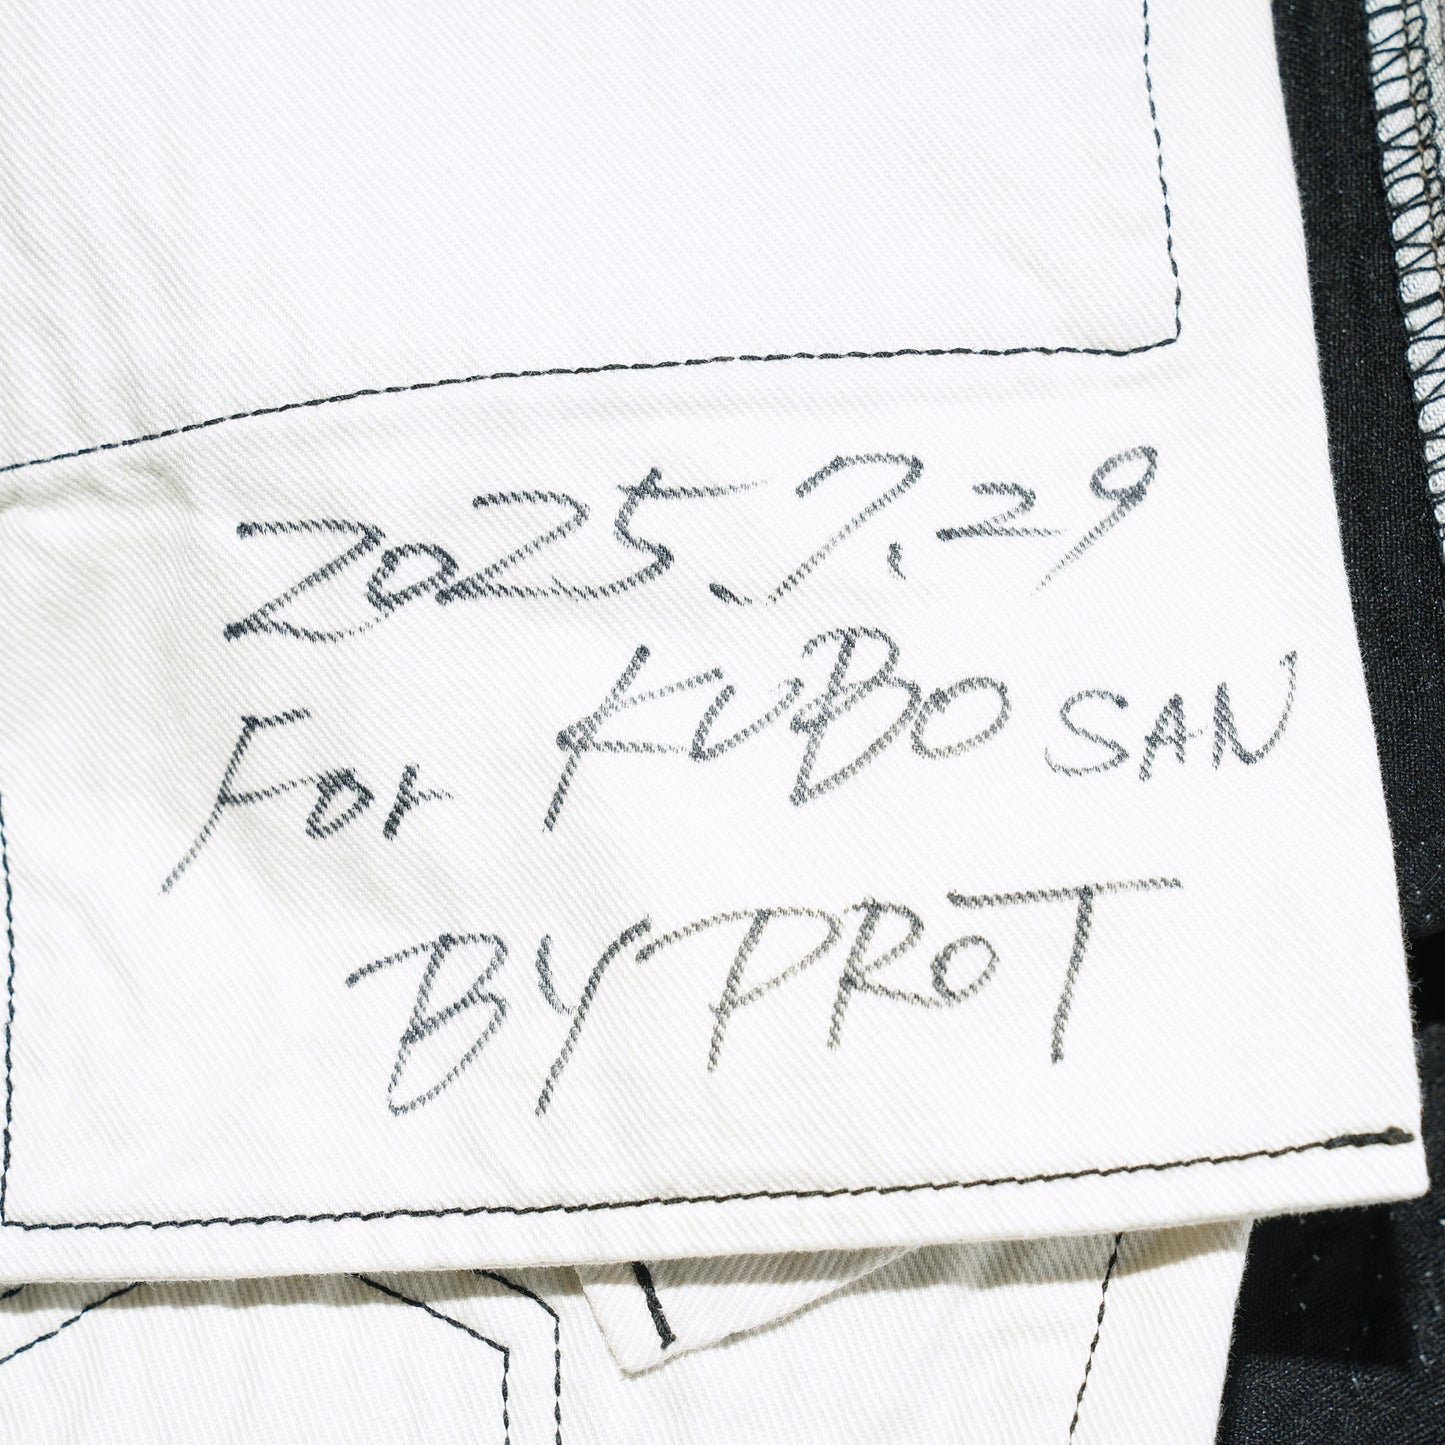 2025.7.29
For KUBO SAN
BY PROT